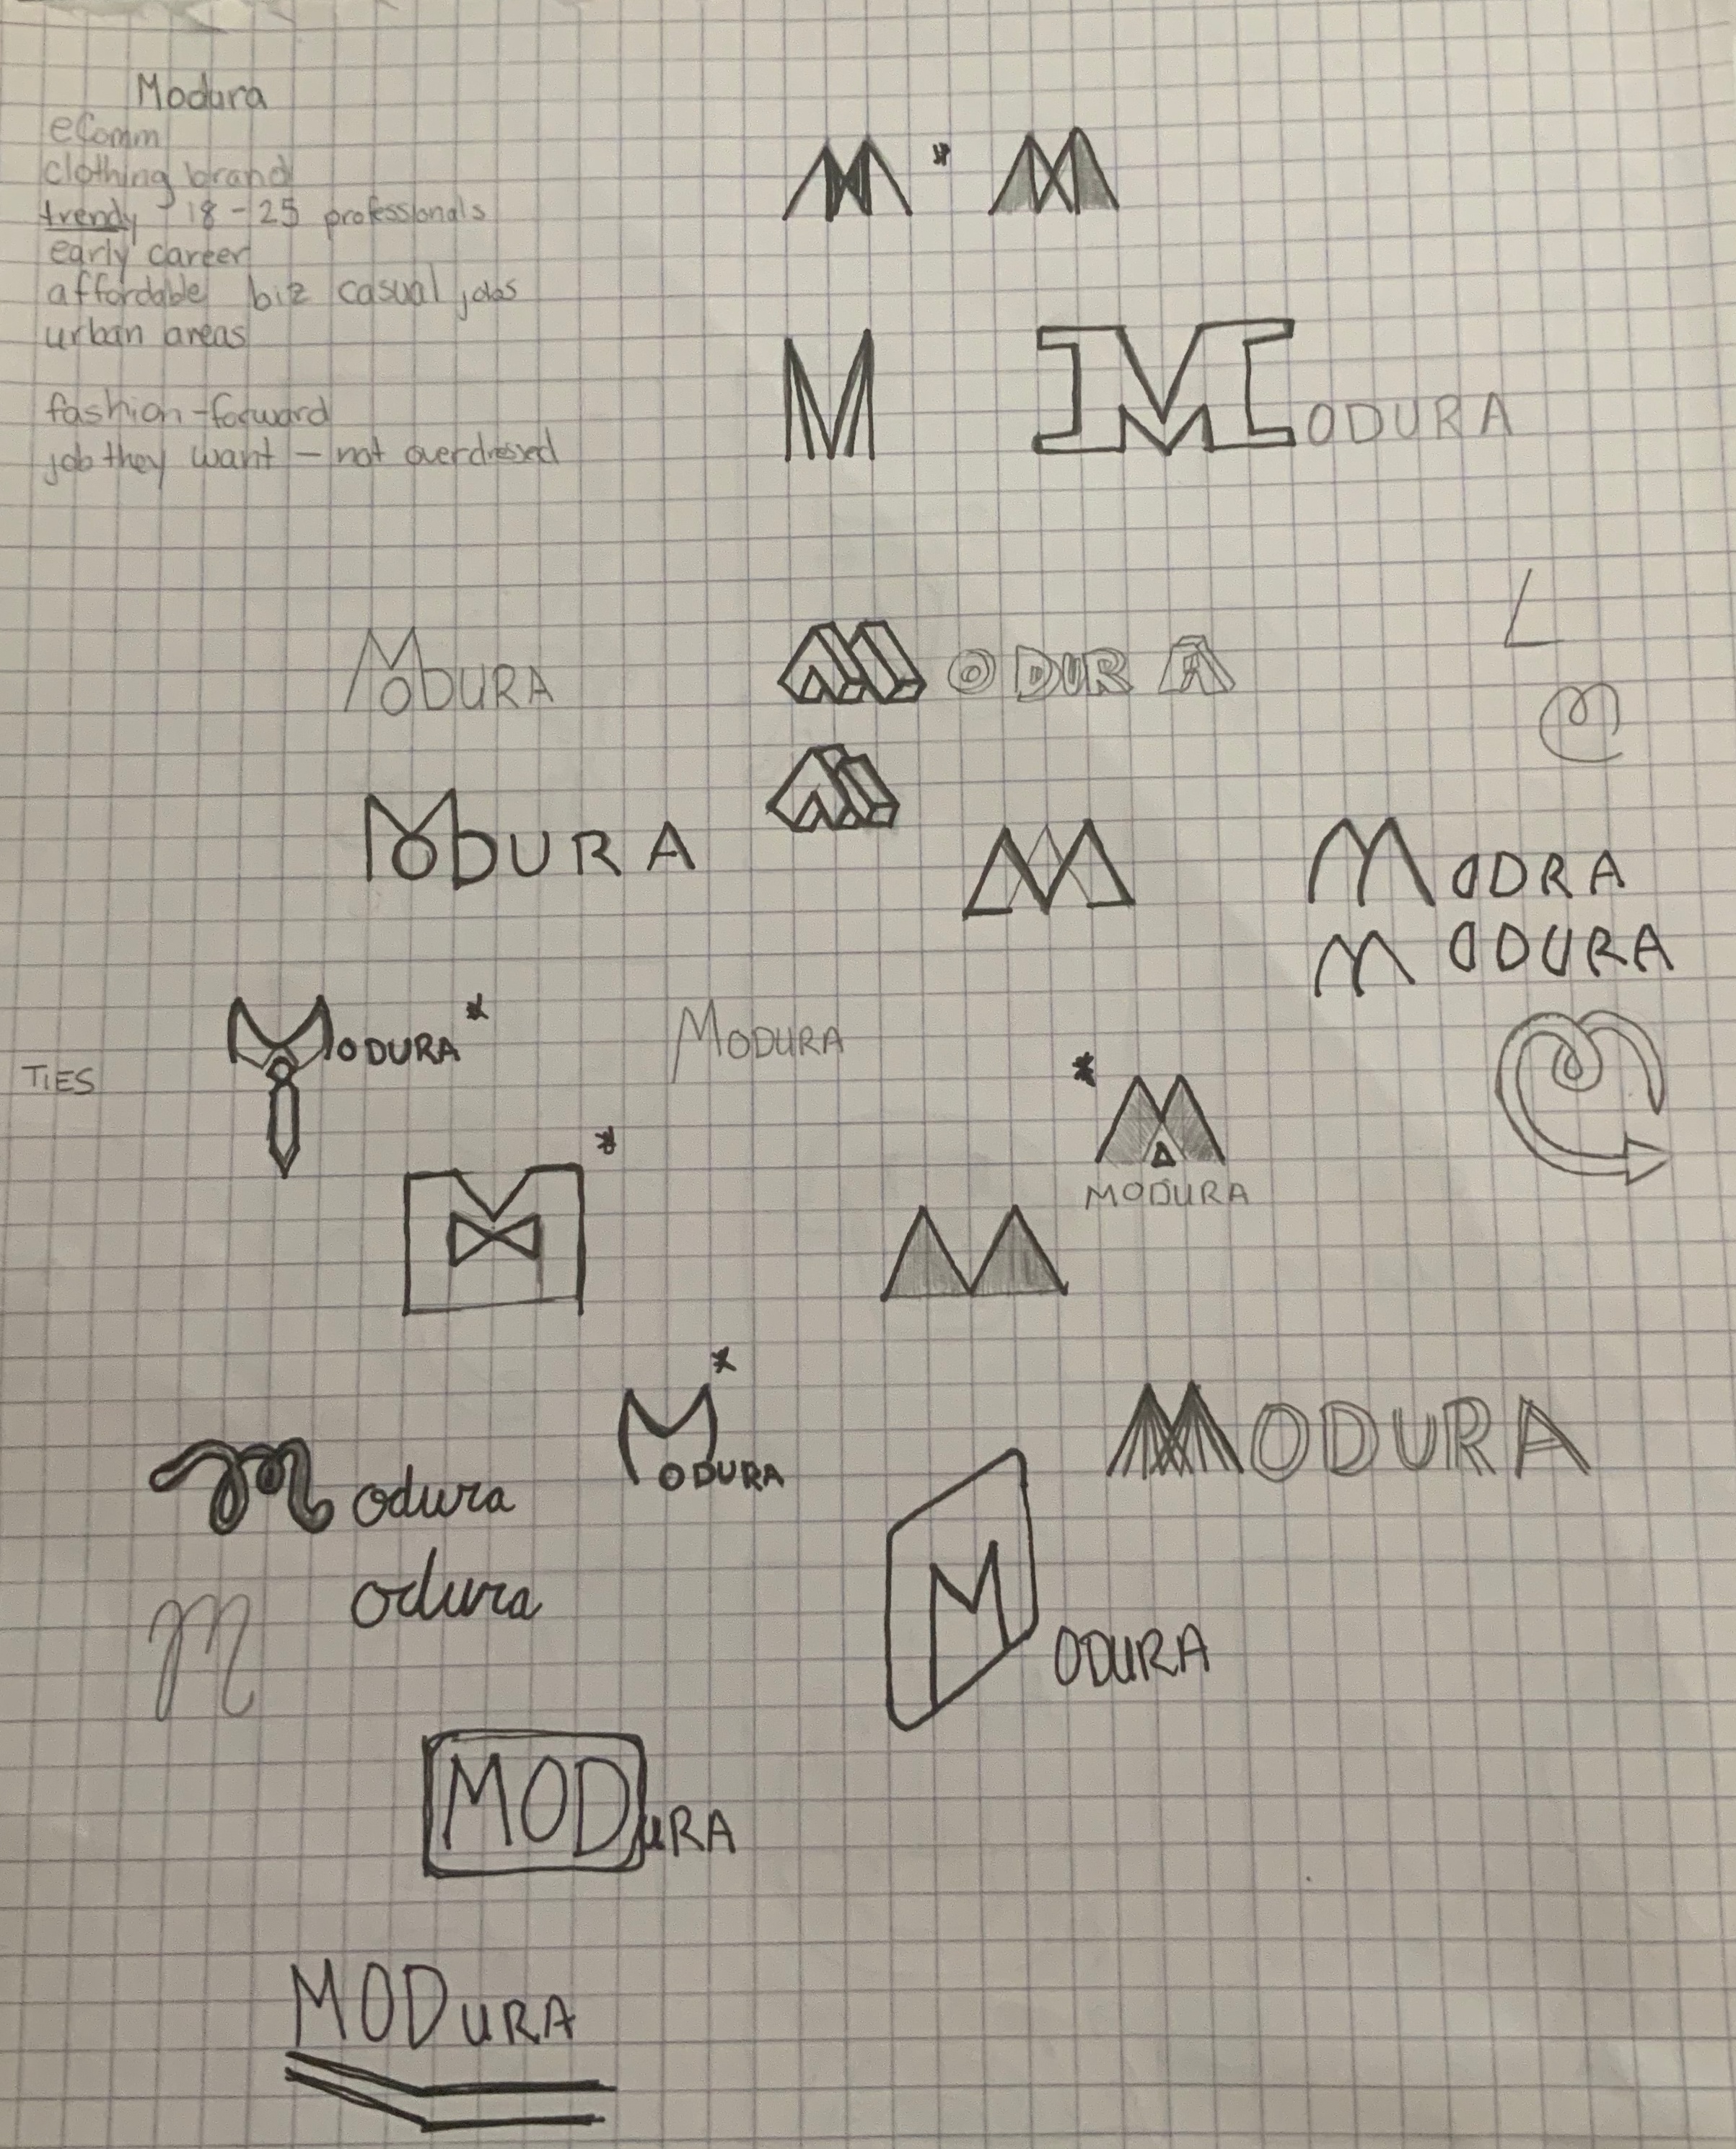 Modura
eComm
clothing brand
trendy - 18-25 professionals
early career
affordable biz casual jobs
urban areas
fashion-forward
job they want - not overdressed
M
M
M
MODURA
L
MODURA
MODURA
M
MODURA
M
M
MODRA
MODURA
TIES
MODURA
MODURA
M
M
MODURA
M
M
MODURA
MODURA
Modura
M
odura
MODURA
MODuRA
MODuRA